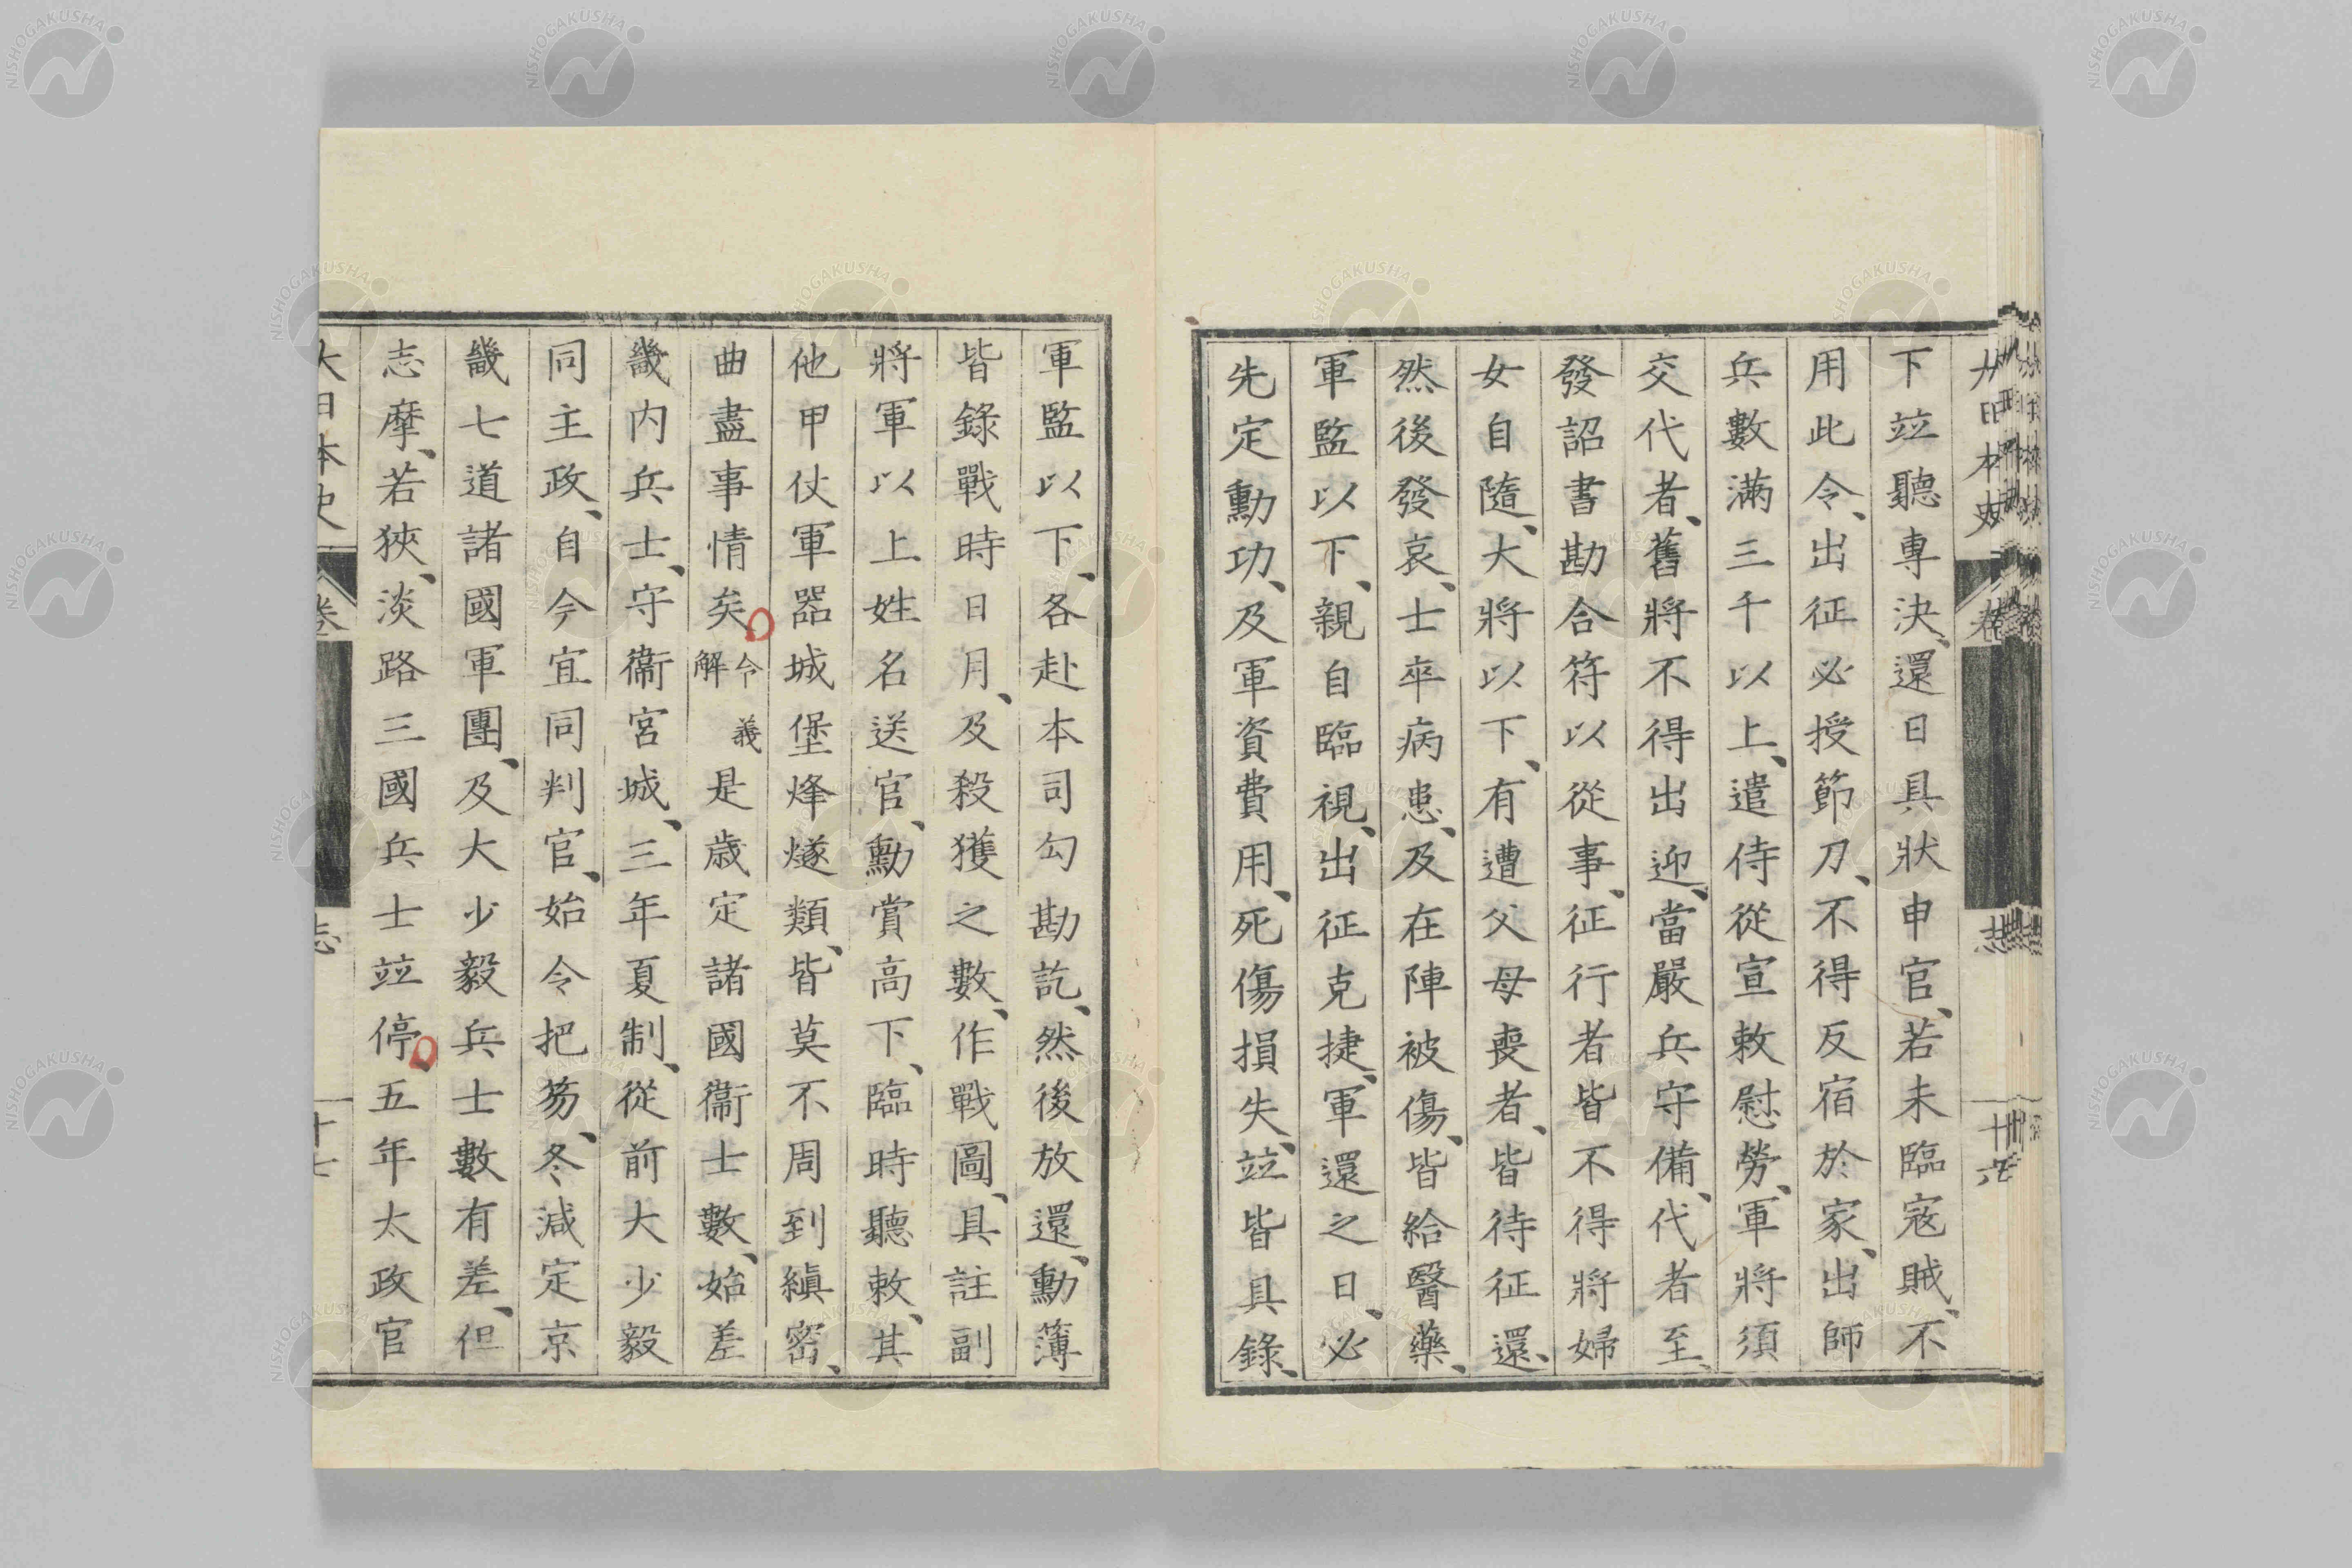 下竝聽專決、還日具狀申官、若未臨寇賊、不
用此令、出征必授節刀、不得反宿於家、出師
兵數滿三千以上、遣侍從宣敕慰勞、軍將須
交代者、舊將不得出迎、當嚴兵守備、代者至、
發詔書勘合符以從事、征行者皆不得將婦
女自隨、大將以下、有遭父母喪者、皆待征還、
然後發哀、士卒病患、及在陣被傷、皆給醫藥、
軍監以下、親自臨視、出征克捷、軍還之日、必
先定勳功、及軍資費用、死傷損失、竝皆具錄、
軍監以下、各赴本司勾勘訖、然後放還、勳簿
皆錄戰時日月、及殺獲之數、作戰圖、具註副
將軍以上姓名送官、勳賞高下、臨時聽敕、其
他甲仗軍器城堡烽燧類、皆莫不周到縝密、
曲盡事情矣。令義解是歲定諸國衞士數、始差
畿內兵士、守衞宮城、三年夏制、從前大少毅
同主政、自今宜同判官、始令把笏、冬減定京
畿七道諸國軍團、及大少毅兵士數有差、但
志摩、若狹、淡路三國兵士竝停。五年太政官
大日本史 卷 志 十七
NISHOGAKUSHA